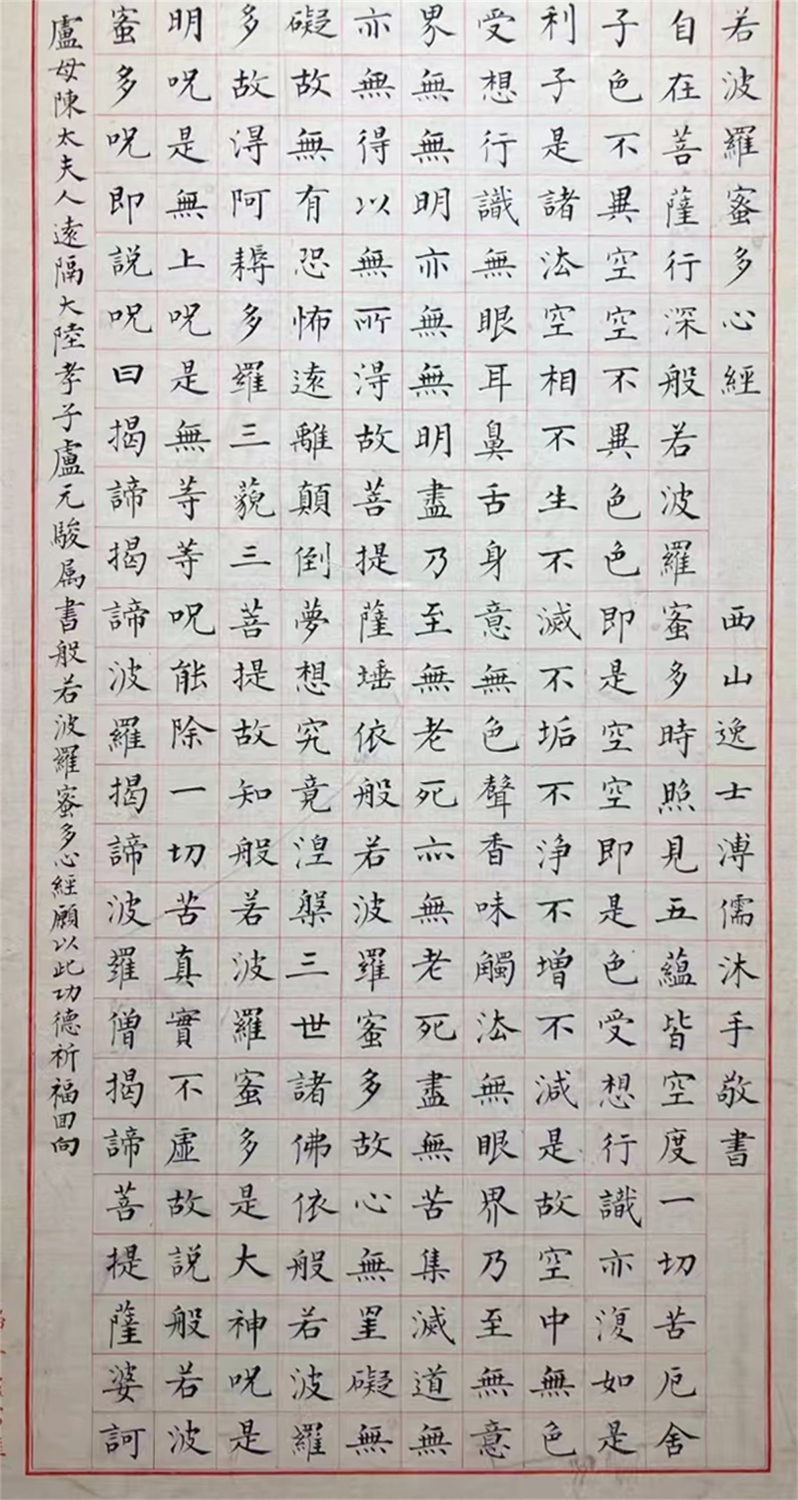 若波羅蜜多心經 西山逸士溥儒沐手敬書
自在菩薩行深般若波羅蜜多時照見五蘊皆空度一切苦厄舍
子色不異空空不異色色即是空空即是色受想行識亦復如是
利子是諸法空相不生不滅不垢不淨不增不減是故空中無色
受想行識無眼耳鼻舌身意無色聲香味觸法無眼界乃至無意
界無無明亦無無明盡乃至無老死亦無老死盡無苦集滅道無
亦無得以無所得故菩提薩埵依般若波羅蜜多故心無罣礙無
礙故無有恐怖遠離顛倒夢想究竟涅槃三世諸佛依般若波羅
多故得阿耨多羅三藐三菩提故知般若波羅蜜多是大神咒是
明咒是無上咒是無等等咒能除一切苦真實不虛故說般若波
蜜多咒即說咒曰揭諦揭諦波羅揭諦波羅僧揭諦菩提薩婆訶
盧母陳太夫人遠隔大陸孝子盧元駿属書般若波羅蜜多心經願以此功德祈福回向